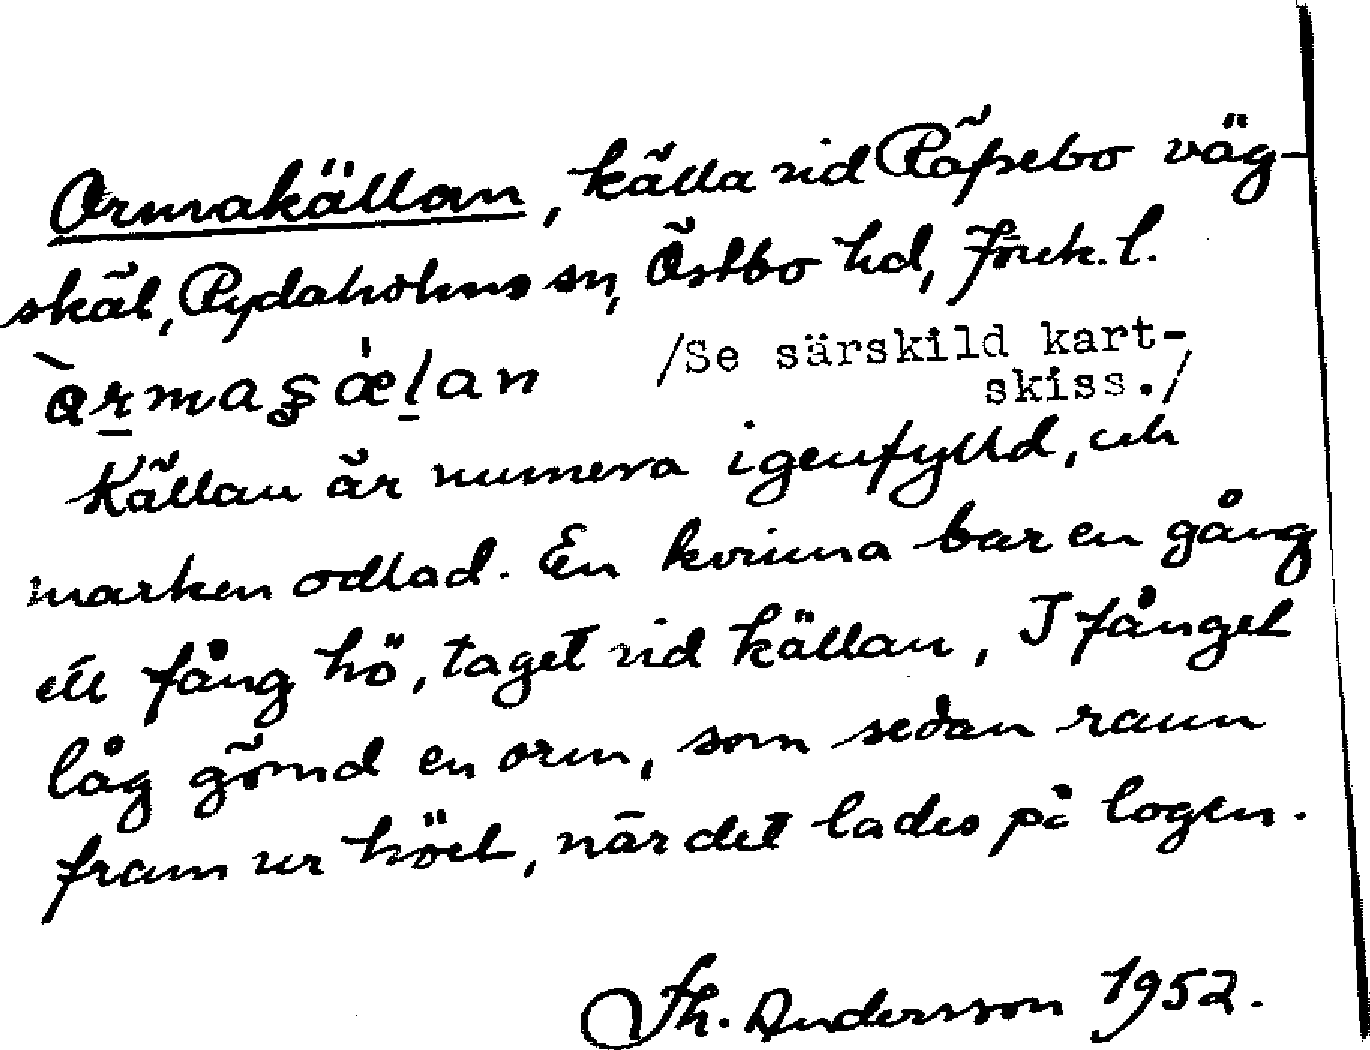 Ormakällan, källa vid Räpsebo väg-
skäl, Rydaholms sn, Östbo hd, Jönk. l.
/Se särskild kart-
skiss./
Källan är numera igenfylld, och
marken odlad. En kvinna bar en gång
ett fång hö, taget vid källan, I fånget
låg gömd en orm, som sedan rann
fram ur höet, när det lades på logen.
Th. Andersson 1952.